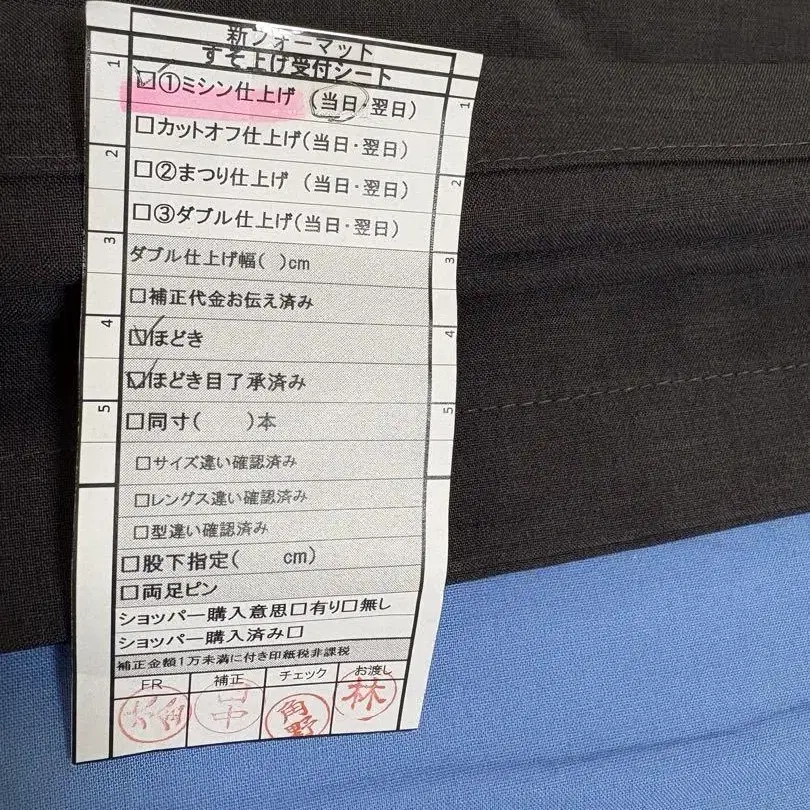 新フォーマット
すそ上げ受付シート
1 ☑①ミシン仕上げ (当日・翌日) 1
□カットオフ仕上げ(当日・翌日)
2 □②まつり仕上げ (当日・翌日) 2
□③ダブル仕上げ(当日・翌日)
3 ダブル仕上げ幅( )cm 3
□補正代金お伝え済み
4 ☑ほどき 4
☑ほどき目了承済み
5 □同寸( )本 5
□サイズ違い確認済み
□レングス違い確認済み
□型違い確認済み
□股下指定( cm)
□両足ピン
ショッパー購入意思□有り□無し
ショッパー購入済み□
補正金額1万未満に付き印紙税非課税
FR 補正 チェック お渡し
角野 林